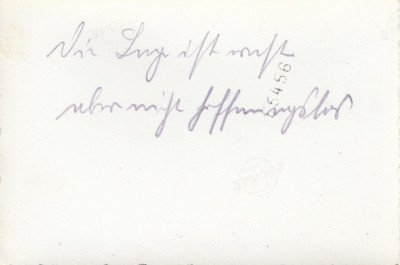 Die Lage ist ernst
aber nicht hoffnungslos